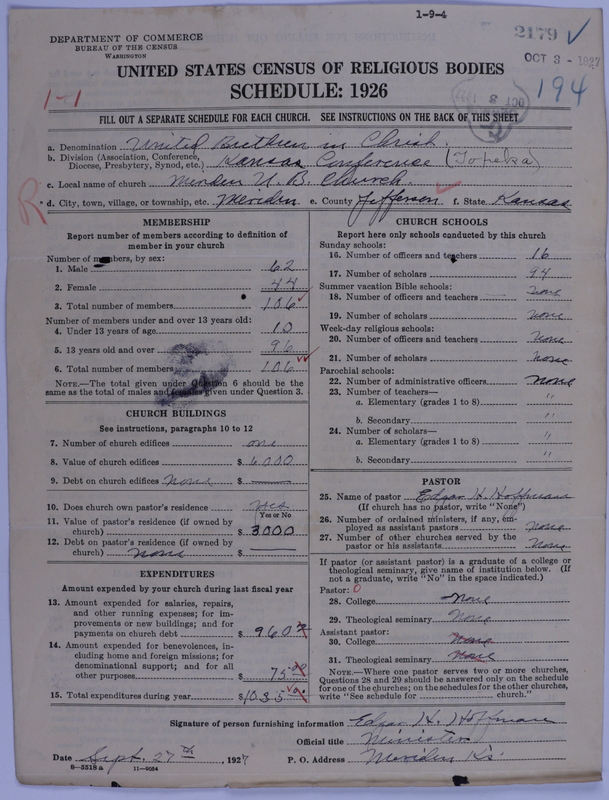 1-9-4
DEPARTMENT OF COMMERCE
BUREAU OF THE CENSUS
WASHINGTON
2179 ✓
OCT 3 - 1927
UNITED STATES CENSUS OF RELIGIOUS BODIES
SCHEDULE: 1926
1-1
OCT 3
194
FILL OUT A SEPARATE SCHEDULE FOR EACH CHURCH. SEE INSTRUCTIONS ON THE BACK OF THIS SHEET
a. Denomination United Brethren in Christ
b. Division (Association, Conference, Diocese, Presbytery, Synod, etc.) Kansas Conference (Topeka)
c. Local name of church Meriden U. B. Church
R
* d. City, town, village, or township, etc. Meriden e. County Jefferson f. State Kansas
MEMBERSHIP
Report number of members according to definition of
member in your church
Number of members, by sex:
1. Male 62
2. Female 44
3. Total number of members 106
Number of members under and over 13 years old:
4. Under 13 years of age 10
5. 13 years old and over 96
6. Total number of members 106
NOTE.—The total given under Question 6 should be
same as the total of males and females given under Question 3.
CHURCH BUILDINGS
See instructions, paragraphs 10 to 12
7. Number of church edifices one
8. Value of church edifices $ 6000
9. Debt on church edifices None $
10. Does church own pastor's residence yes
Yes or No
11. Value of pastor's residence (if owned by
church) $ 3000
12. Debt on pastor's residence (if owned by
church) None $
EXPENDITURES
Amount expended by your church during last fiscal year
13. Amount expended for salaries, repairs,
and other running expenses; for im-
provements or new buildings; and for
payments on church debt $ 960
14. Amount expended for benevolences, in-
cluding home and foreign missions; for
denominational support; and for all
other purposes $ 75
15. Total expenditures during year $ 1035
CHURCH SCHOOLS
Report here only schools conducted by this church
Sunday schools:
16. Number of officers and teachers 16
17. Number of scholars 94
Summer vacation Bible schools:
18. Number of officers and teachers none
19. Number of scholars none
Week-day religious schools:
20. Number of officers and teachers None
21. Number of scholars None
Parochial schools:
22. Number of administrative officers none
23. Number of teachers—
a. Elementary (grades 1 to 8) "
b. Secondary "
24. Number of scholars—
a. Elementary (grades 1 to 8) "
b. Secondary "
PASTOR
25. Name of pastor Edgar H. Hoffman
(If church has no pastor, write "None")
26. Number of ordained ministers, if any, em-
ployed as assistant pastors None
27. Number of other churches served by the
pastor or his assistants None
If pastor (or assistant pastor) is a graduate of a college or
theological seminary, give name of institution below. (If
not a graduate, write "No" in the space indicated.)
Pastor: 0
28. College None
29. Theological seminary None
Assistant pastor:
30. College None
31. Theological seminary None
NOTE.—Where one pastor serves two or more churches,
Questions 28 and 29 should be answered only on the schedule
for one of the churches; on the schedules for the other churches,
write "See schedule for church."
Signature of person furnishing information Edgar H. Hoffman
Official title Minister
Date Sept. 27th, 1927 P. O. Address Meriden Ks
8-5518 a 11-9034